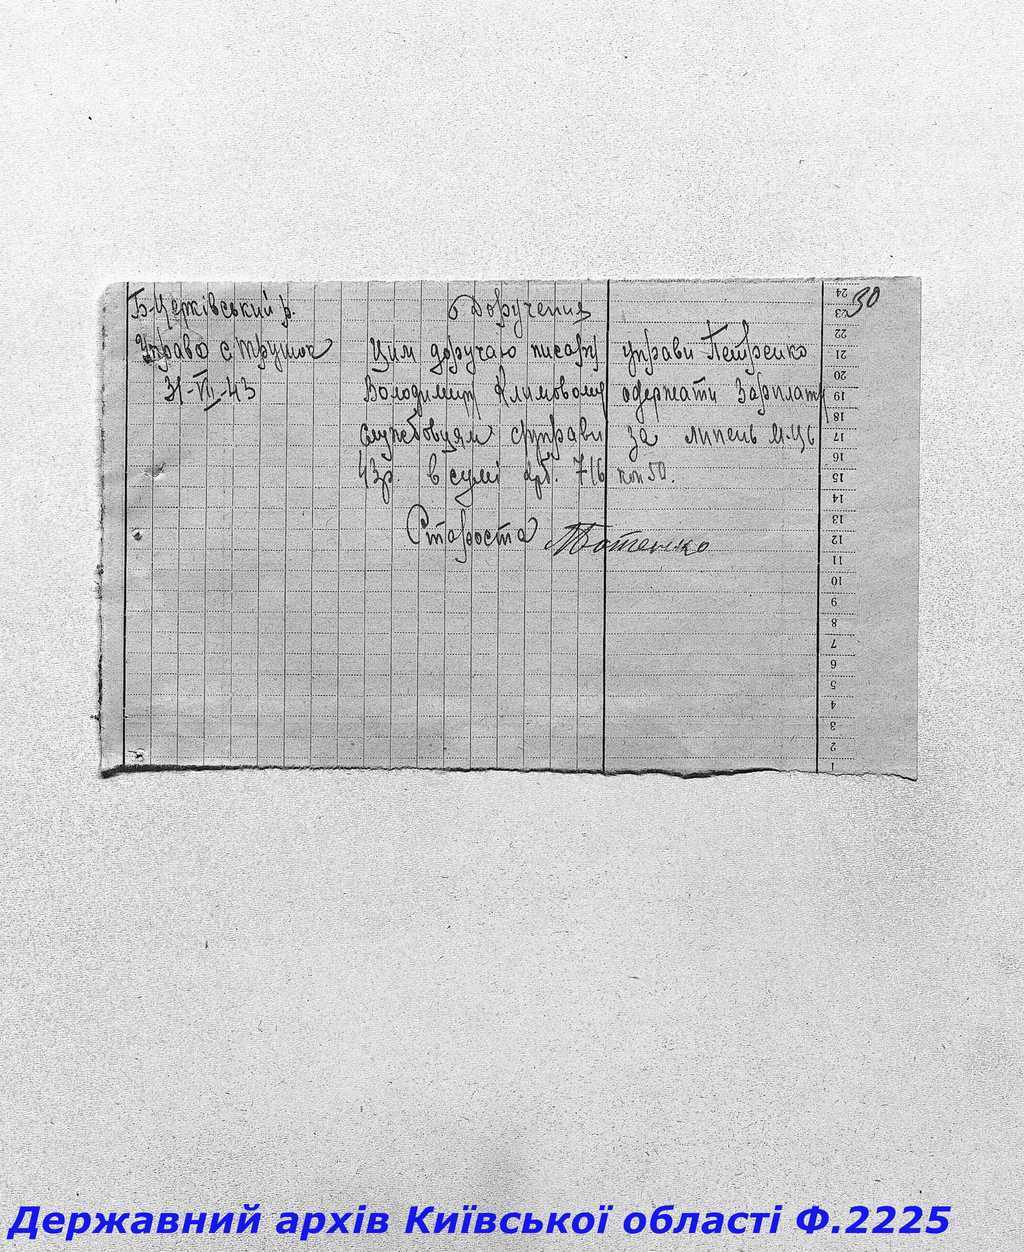 30
Б-Церківський р.
Управа с Трушки
31-VII-43
Доручення
Цим доручаю писарю управи Петренко
Володимиру Климовому одержати Зарплату
службовцям с/управи за липень м-ць
43р. в сумі крб. 716 коп 50.
Староста
24
23
22
21
20
19
18
17
16
15
14
13
12
11
10
9
8
7
6
5
4
3
2
1
Державний архів Київської області Ф.2225